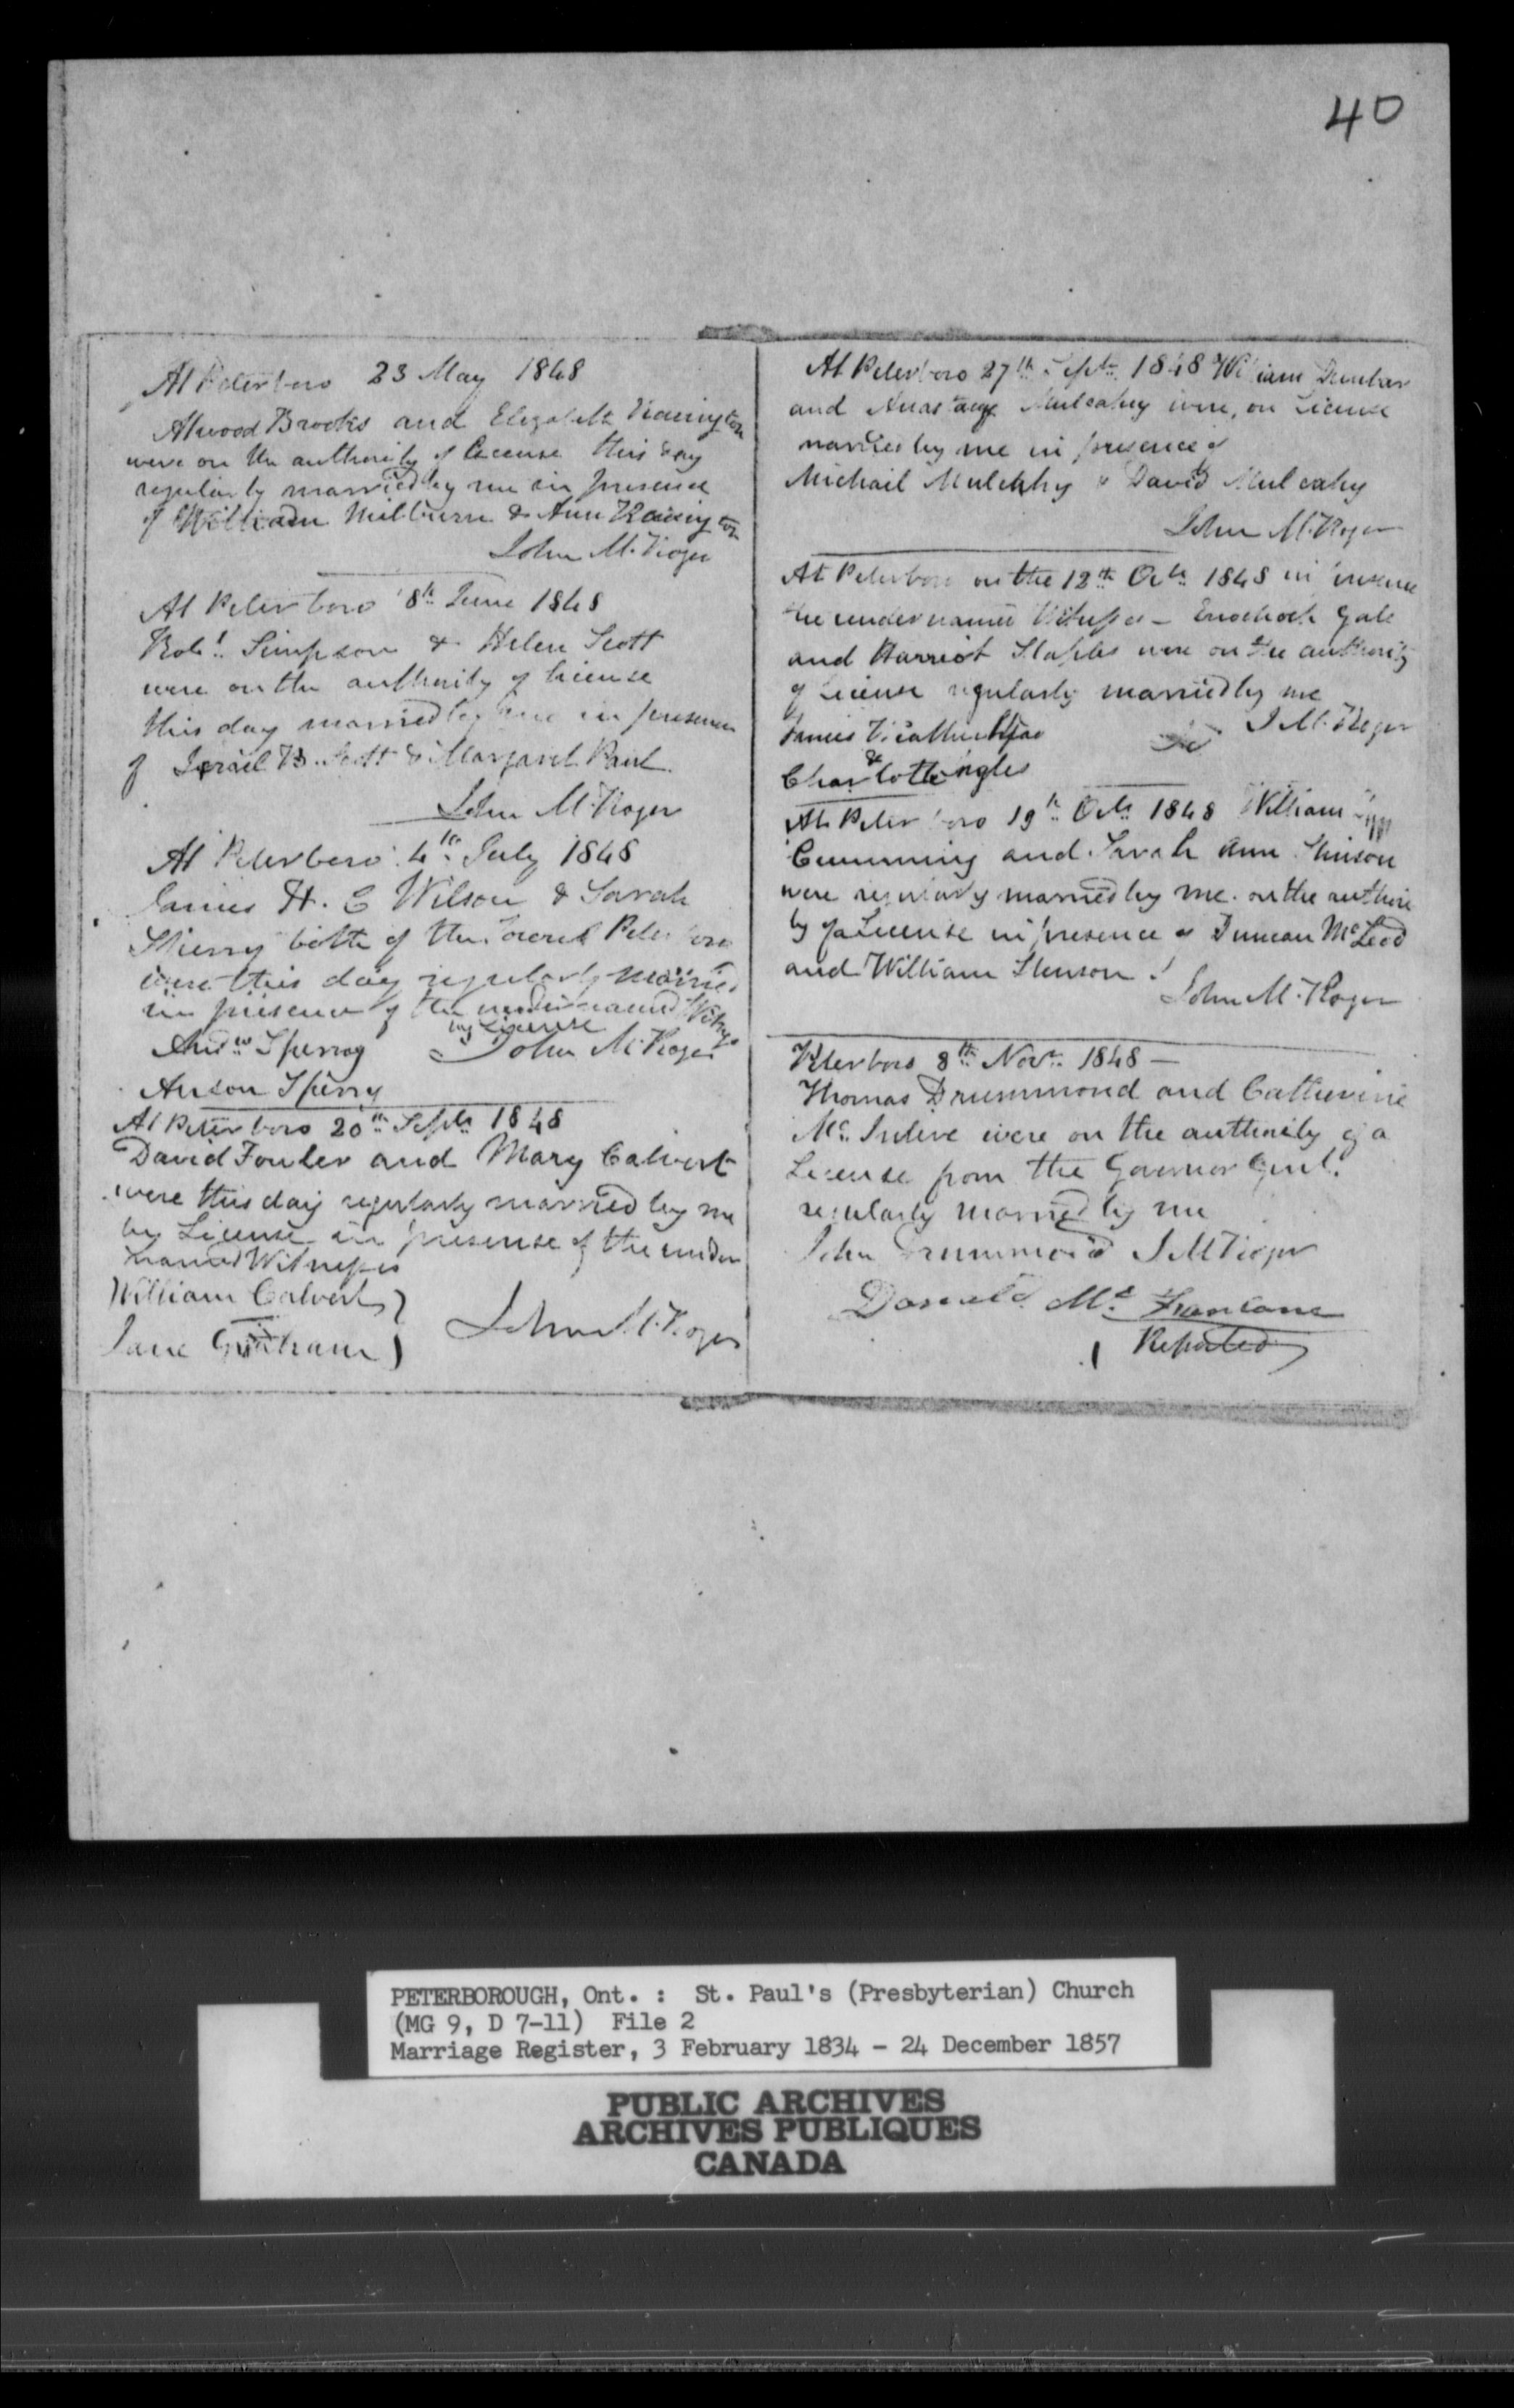 40
At Peterboro 23 May 1848
Atwood Brooks and Elizabeth
were on the authority of License this day
regularly married by me in presence
of William Milburn & Ann
John M. Roger
At Peterboro 8th June 1848
Robt. Simpson & Helen Scott
were on the authority of License
this day married by me in presence
of Israel B. Scott & Margaret Paul
John M. Roger
At Peterboro 4th July 1848
James H. C Wilson & Sarah
Sperry both of the Peterboro
were this day regularly married
in presence of the undernamed
by License
Andw Sperry John M. Roger
Anson Sperry
At Peterboro 20th Septr 1848
David Fowler and Mary Calvert
were this day regularly married by me
by License in presense of the under
named Witnesses
William Calvert
Jane Graham John M. Roger
At Peterboro 27th Septr 1848 William Dunbar
and Mulcahy were, on License
married by me in presence of
Michail Mulcahy & David Mulcahy
John M. Roger
At Peterboro on the 12th Octr 1848 in presence
the undernamed Witnesses - Gale
and Harriot Staples were on the authority
of License regularly married by me
James J M. Roger
&
Charlotte Ingles
At Peterboro 19th Octr 1848 William
Cumming and Sarah Ann Stinson
were regularly married by me on the authori
ty of a License in presence of Duncan McLeod
and William Stinson
John M. Roger
Peterboro 8th Novr 1848 —
Thomas Drummond and Catherine
Mc. were on the authority of a
License from the Governor Genl.
regularly married by me
John Drummond J M Roger
Donald Mc
Reported
PETERBOROUGH, Ont. : St. Paul's (Presbyterian) Church
(MG 9, D 7-11) File 2
Marriage Register, 3 February 1834 - 24 December 1857
PUBLIC ARCHIVES
ARCHIVES PUBLIQUES
CANADA